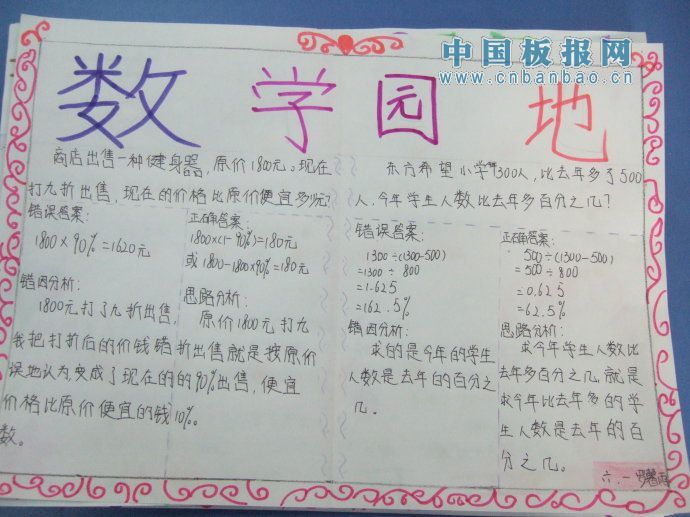 中国板报网
www.cnbanbao.cn
数学园地
商店出售一种健身器，原价1800元。现在
打九折出售，现在的价格比原价便宜多少元？
错误答案：
1800×90%=1620元
错因分析：
1800元打了九折出售，
我把打折后的价钱错
误地认为变成了现在的
价格比原价便宜的钱
数。
正确答案：
1800×(1-90%)=180元
或1800-1800×90%=180元
思路分析：
原价1800元打九
折出售就是按原价
的90%出售，便宜
10%。
东方希望小学有1300人，比去年多了500
人，今年学生人数比去年多百分之几？
错误答案：
1300÷(1300-500)
=1300÷800
=1.625
=162.5%
错因分析：
求的是今年的学生
人数是去年的百分之
几。
正确答案：
500÷(1300-500)
=500÷800
=0.625
=62.5%
思路分析：
求今年学生人数比
去年多百分之几，就是
求今年比去年多的学
生人数是去年的百
分之几。
六.一